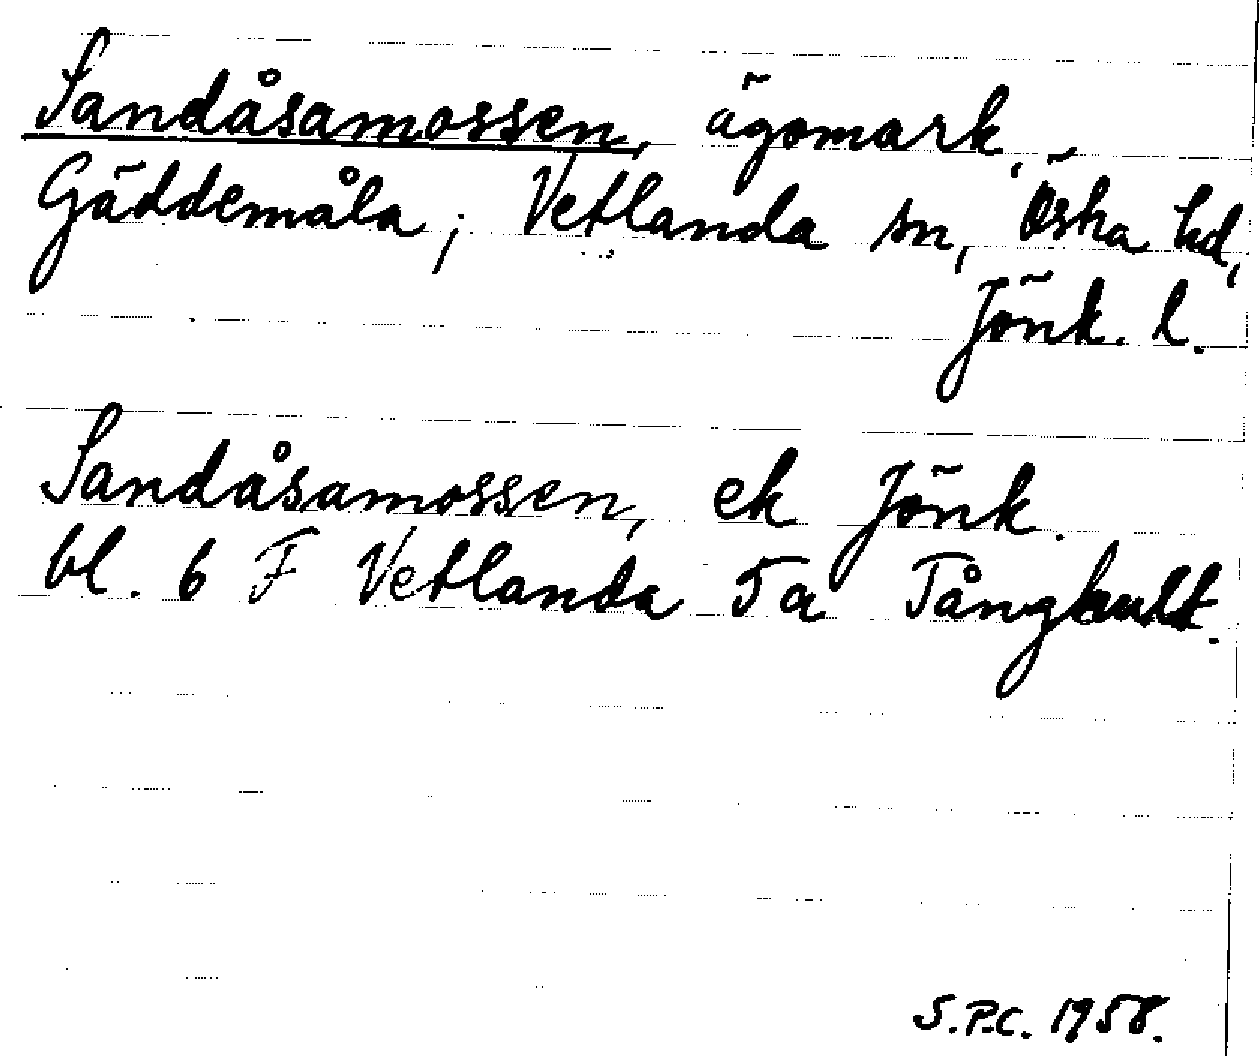 Sandåsamossen, ägomark,
Gäddemåla, Vetlanda sn, Östra hd,
Jönk. l.
Sandåsamossen, ek Jönk.
bl. 6 F Vetlanda 5a Tånghult.
S.P.C. 1958.